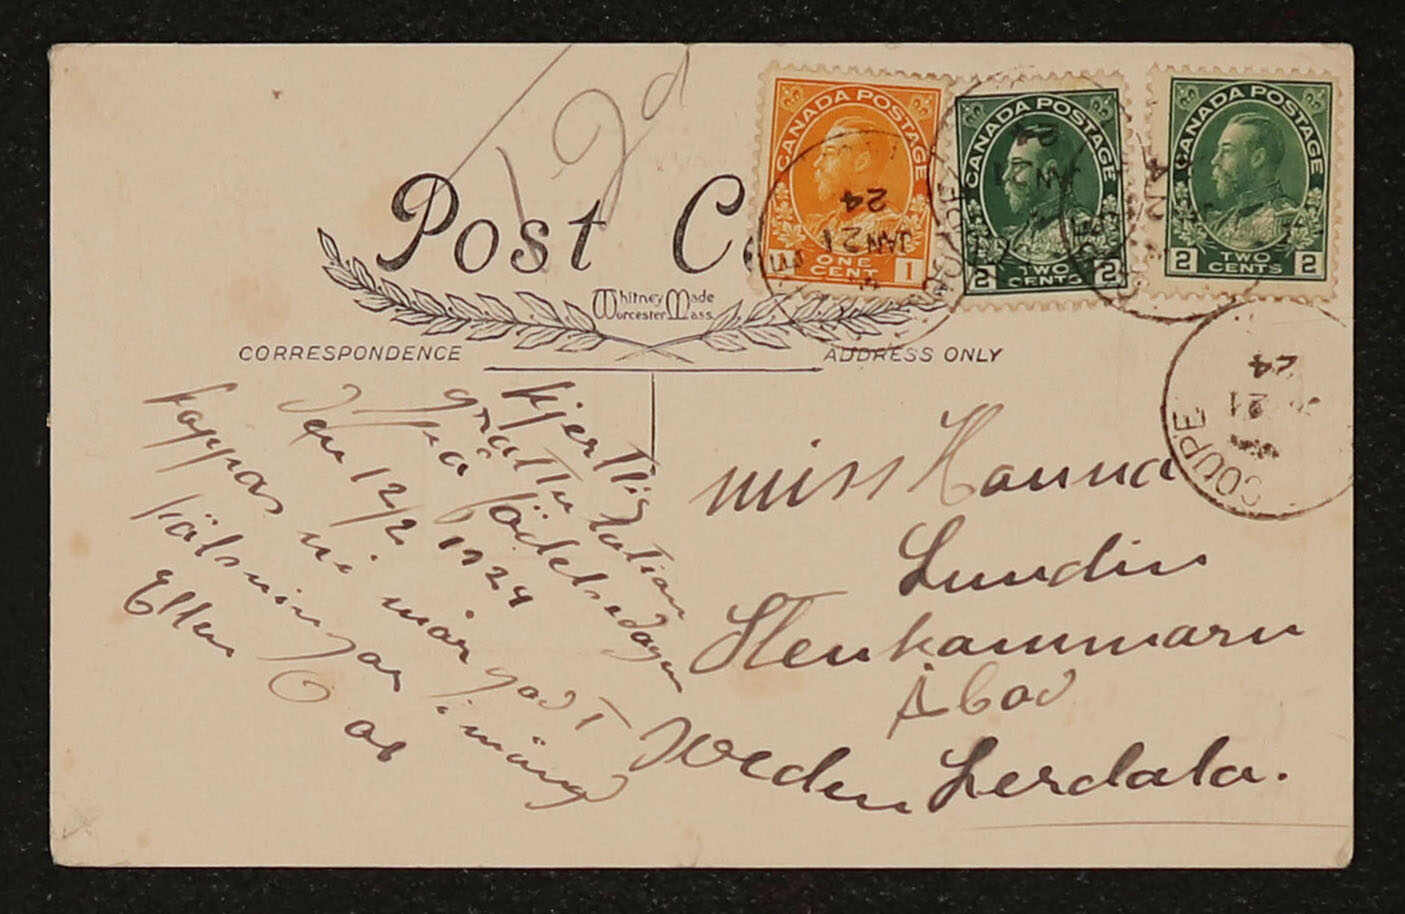 Post C
Whitney Made
Worcester Mass.
CORRESPONDENCE
ADDRESS ONLY
CANADA POSTAGE
ONE CENT
1
CANADA POSTAGE
2 TWO CENTS 2
CANADA POSTAGE
2 TWO CENTS 2
JAN 21
24
COUPE
21
24
hjertlig
gratulation
på födelsedagen
den 12/2 1924
hoppas ni mår godt
hälsningar i mängd
Ellen
miss Hanna
Lundin
Stenkammarn
Åbod
Sweden Lerdala.